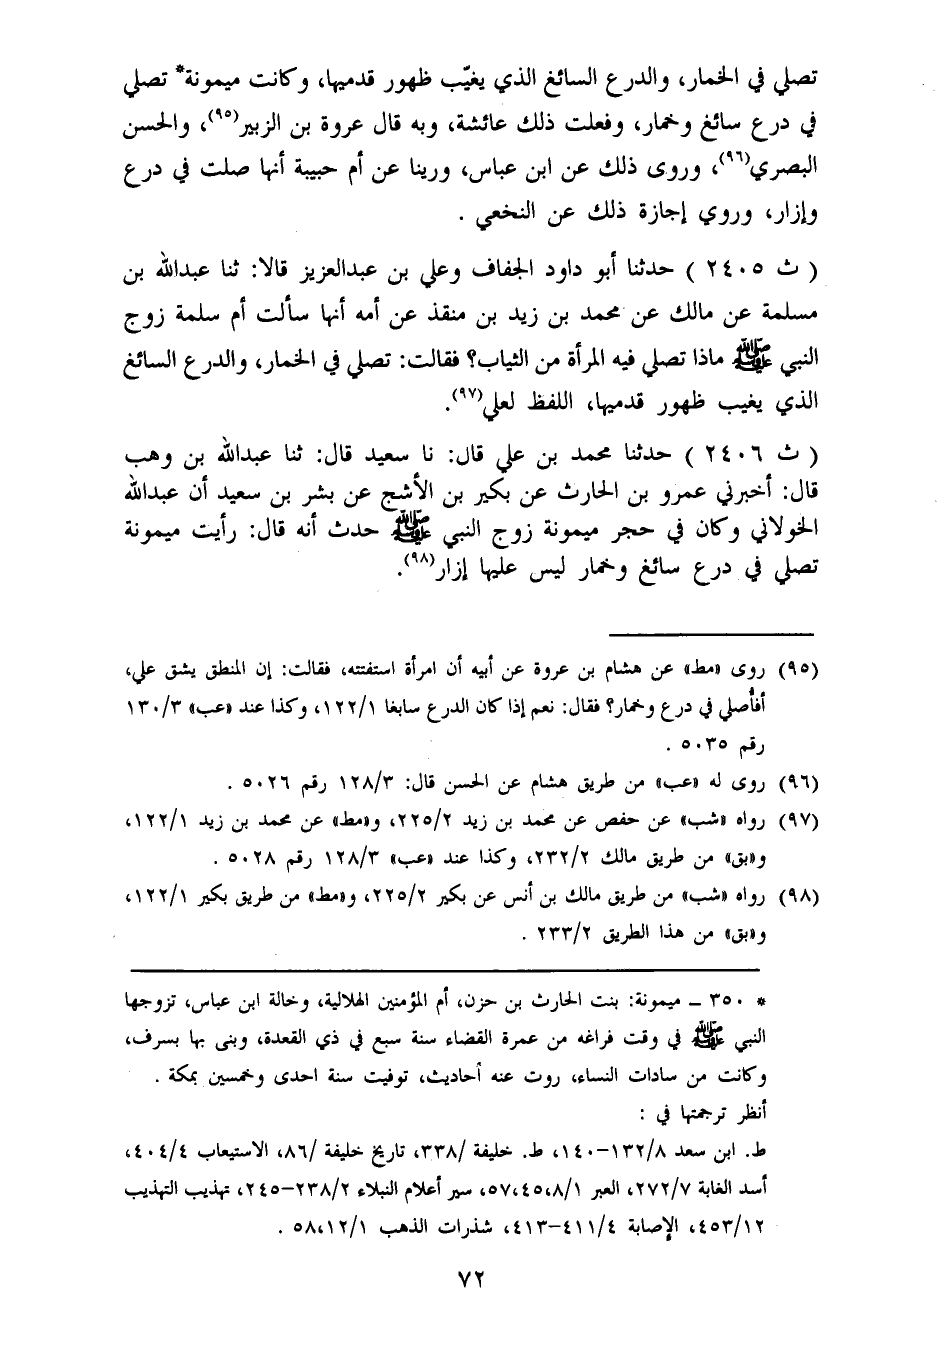 تصلي في الخمار، والدرع السائغ الذي يغيّب ظهور قدميها، وكانت ميمونة* تصلي
في درع سائغ وخمار، وفعلت ذلك عائشة، وبه قال عروة بن الزبير(٩٥)، والحسن
البصري(٩٦)، وروى ذلك عن ابن عباس، ورينا عن أم حبيبة أنها صلت في درع
وإزار، وروي إجازة ذلك عن النخعي .
( ث ٢٤٠٥ ) حدثنا أبو داود الجفاف وعلي بن عبدالعزيز قالا: ثنا عبدالله بن
مسلمة عن مالك عن محمد بن زيد بن منقذ عن أمه أنها سألت أم سلمة زوج
النبي ﷺ ماذا تصلي فيه المرأة من الثياب؟ فقالت: تصلي في الخمار، والدرع السائغ
الذي يغيب ظهور قدميها، اللفظ لعلي(٩٧).
( ث ٢٤٠٦ ) حدثنا محمد بن علي قال: نا سعيد قال: ثنا عبدالله بن وهب
قال: أخبرني عمرو بن الحارث عن بكير بن الأشج عن بشر بن سعيد أن عبدالله
الخولاني وكان في حجر ميمونة زوج النبي ﷺ حدث أنه قال: رأيت ميمونة
تصلي في درع سائغ وخمار ليس عليها إزار(٩٨).
(٩٥) روى «مط» عن هشام بن عروة عن أبيه أن امرأة استفتته، فقالت: إن المنطق يشق علي،
أفأصلي في درع وخمار؟ فقال: نعم إذا كان الدرع سابغا ١٢٢/١، وكذا عند «عب» ١٣٠/٣
رقم ٥٠٣٥ .
(٩٦) روى له «عب» من طريق هشام عن الحسن قال: ١٢٨/٣ رقم ٥٠٢٦ .
(٩٧) رواه «شب» عن حفص عن محمد بن زيد ٢٢٥/٢، و«مط» عن محمد بن زيد ١٢٢/١،
و«بق» من طريق مالك ٢٣٢/٢، وكذا عند «عب» ١٢٨/٣ رقم ٥٠٢٨ .
(٩٨) رواه «شب» من طريق مالك بن أنس عن بكير ٢٢٥/٢، و«مط» من طريق بكير ١٢٢/١،
و«بق» من هذا الطريق ٢٣٣/٢ .
* ٣٥٠ ــ ميمونة: بنت الحارث بن حزن، أم المؤمنين الهلالية، وخالة ابن عباس، تزوجها
النبي ﷺ في وقت فراغه من عمرة القضاء سنة سبع في ذي القعدة، وبنى بها بسرف،
وكانت من سادات النساء، روت عنه أحاديث، توفيت سنة احدى وخمسين بمكة .
أنظر ترجمتها في :
ط. ابن سعد ١٣٢/٨–١٤٠، ط. خليفة /٣٣٨، تاريخ خليفة /٨٦، الاستيعاب ٤٠٤/٤،
أسد الغابة ٢٧٢/٧، العبر ٨/١،٤٥،٥٧، سير أعلام النبلاء ٢٣٨/٢–٢٤٥، تهذيب التهذيب
٤٥٣/١٢، الإصابة ٤١١/٤–٤١٣، شذرات الذهب ١٢/١،٥٨ .
٧٢